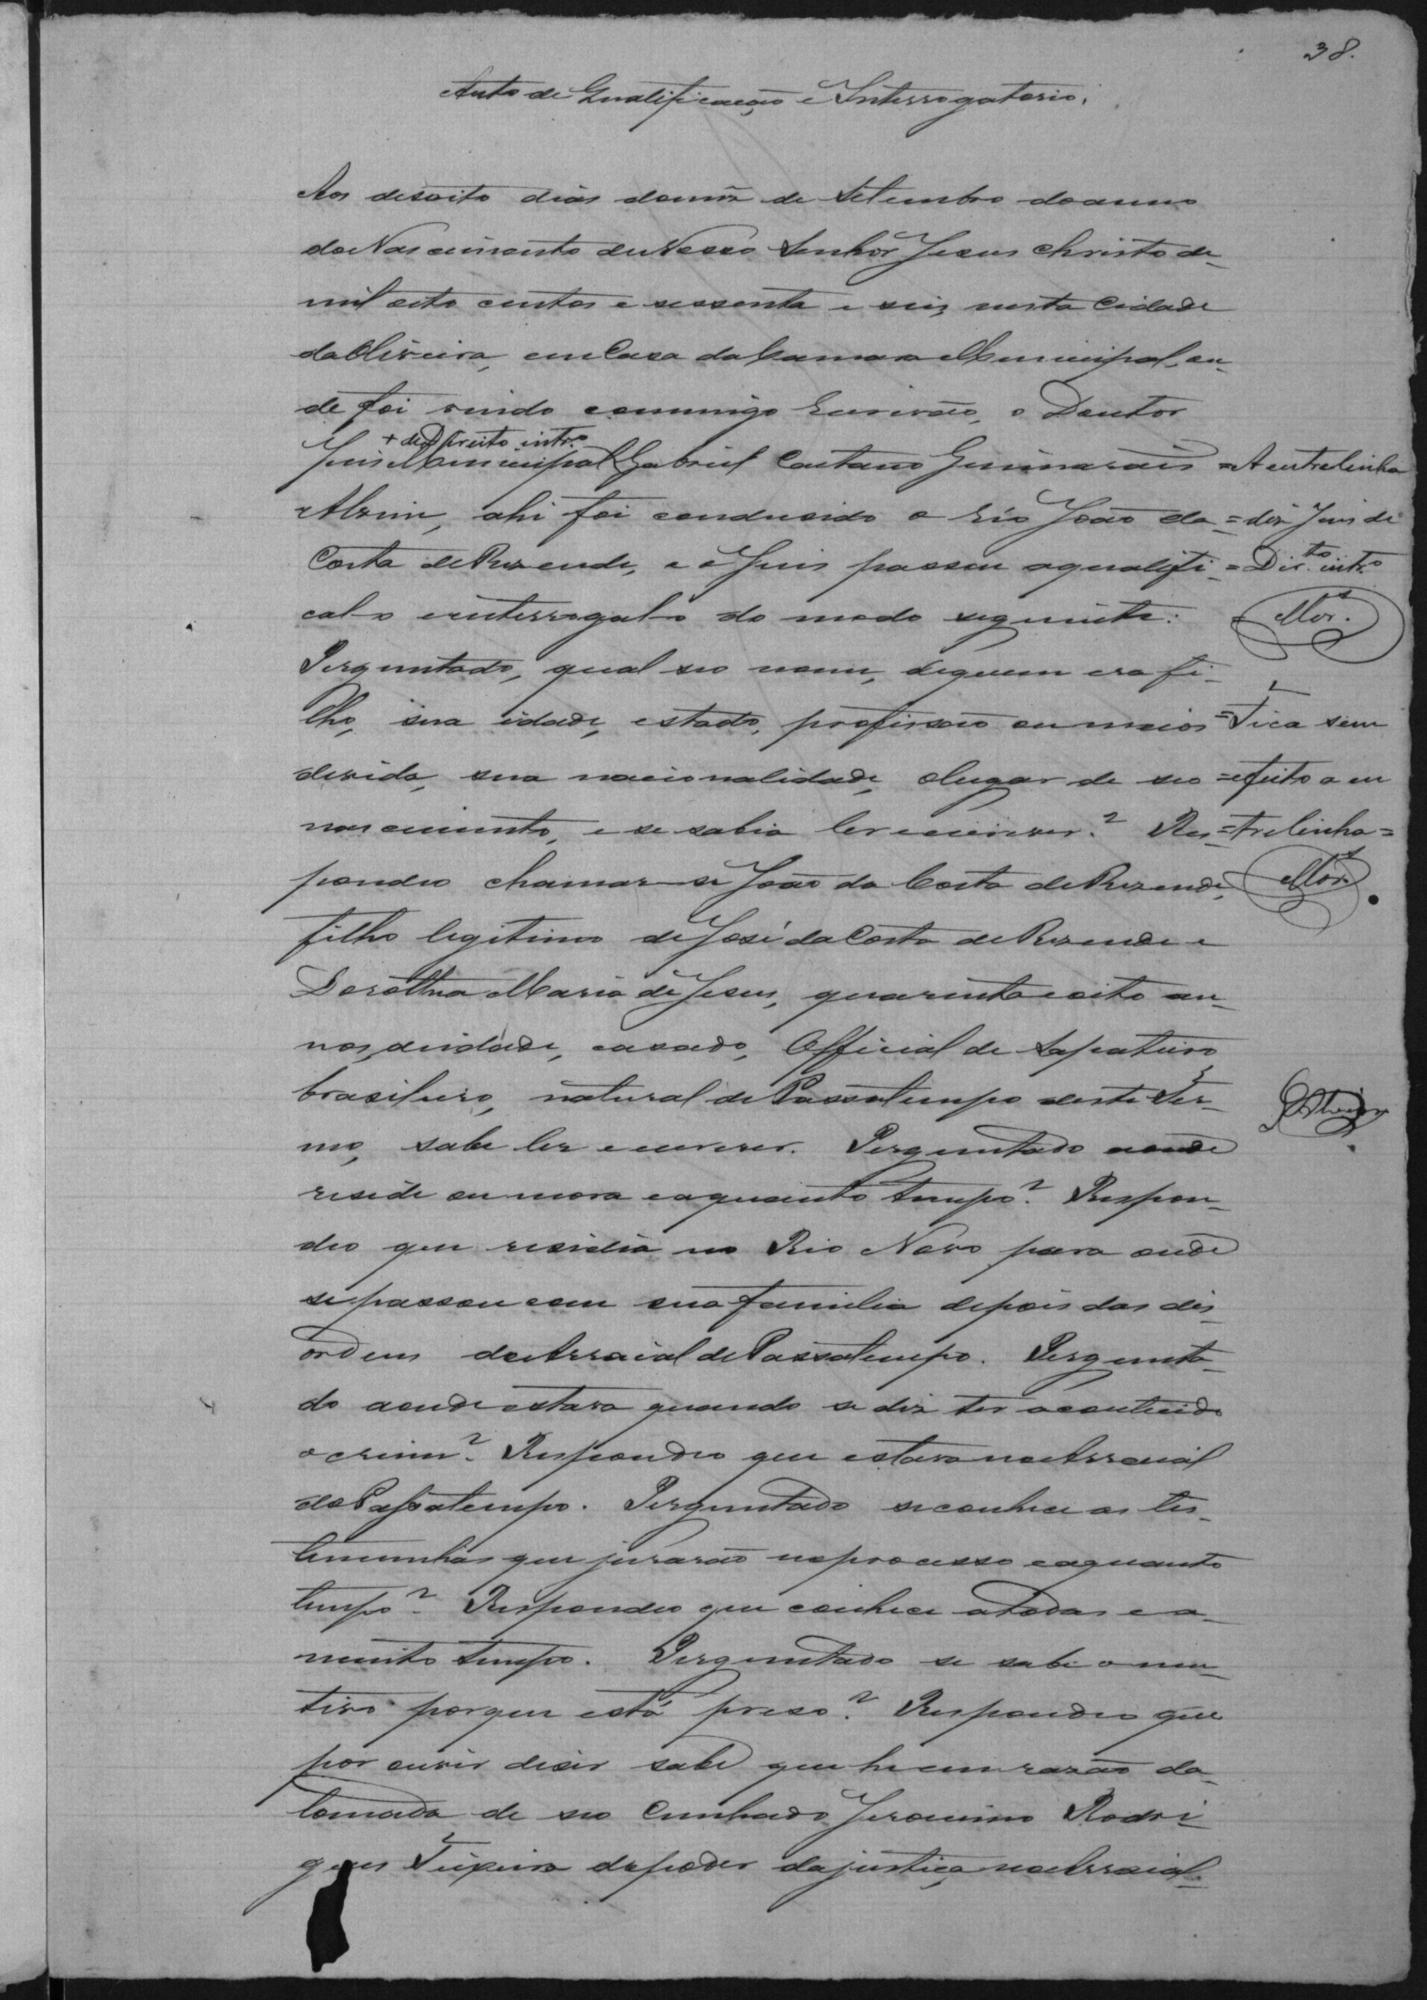 38.
Auto de Qualificação e Interrogatorio.
Aos desoito dias do mez de Setembro do anno
do Nascimento de Nosso Senhor Jesus Christo de
mil oito centos e sessenta e seis, nesta Cidade
da Oliveira, em Casa da Camara Municipal, on-
de foi vindo commigo Escrivão, o Doutor
+ de Direito intr.º
Juis Municipal Gabriel Caetano Guimarães
Alvim, ahi foi condusido o réo João da
Costa de Rezende, e o Juis passou a qualifi-
cal-o e interrogal-o do modo seguinte:
Perguntado, qual seo nome, de quem era fi-
lho, sua idade, estado, profissão ou meios
de vida, sua nacionalidade, o lugar de seo
nascimento, e se sabia ler e escrever? Res-
pondeo chamar-se João da Costa de Rezende,
filho legitimo de José da Costa de Rezende e
Dorothea Maria de Jesus, quarenta e oito an-
nos de idade, casado, Official de Sapateiro
brasileiro, natural de Passatempo deste Ter-
mo, sabe ler e escrever. Perguntado aonde
reside ou mora e a quanto tempo? Respon-
deo que residia no Rio Novo para onde
se passou com sua familia depois das des-
ordens do Arraial de Passatempo. Pergunta-
do aonde estava quando se diz ter acontecido
o crime? Respondeo que estava no Arraial
do Passatempo. Perguntado se conhece as tes-
temunhas que jurarão no processo e a quanto
tempo? Respondeo que conhece a todas e a
muito tempo. Perguntado se sabe o mo-
tivo porque está preso? Respondeo que
por ouvir diser sabe que he em razão da
tomada de seo Cunhado Jeronimo Rodri-
gues Teixeira do poder da justiça no Arraial
= A entrelinha
= diz Juis de
= Dir.to intr.º
Mor.s
= Fica sem
= effeito a en
= trelinha =
Mor.s